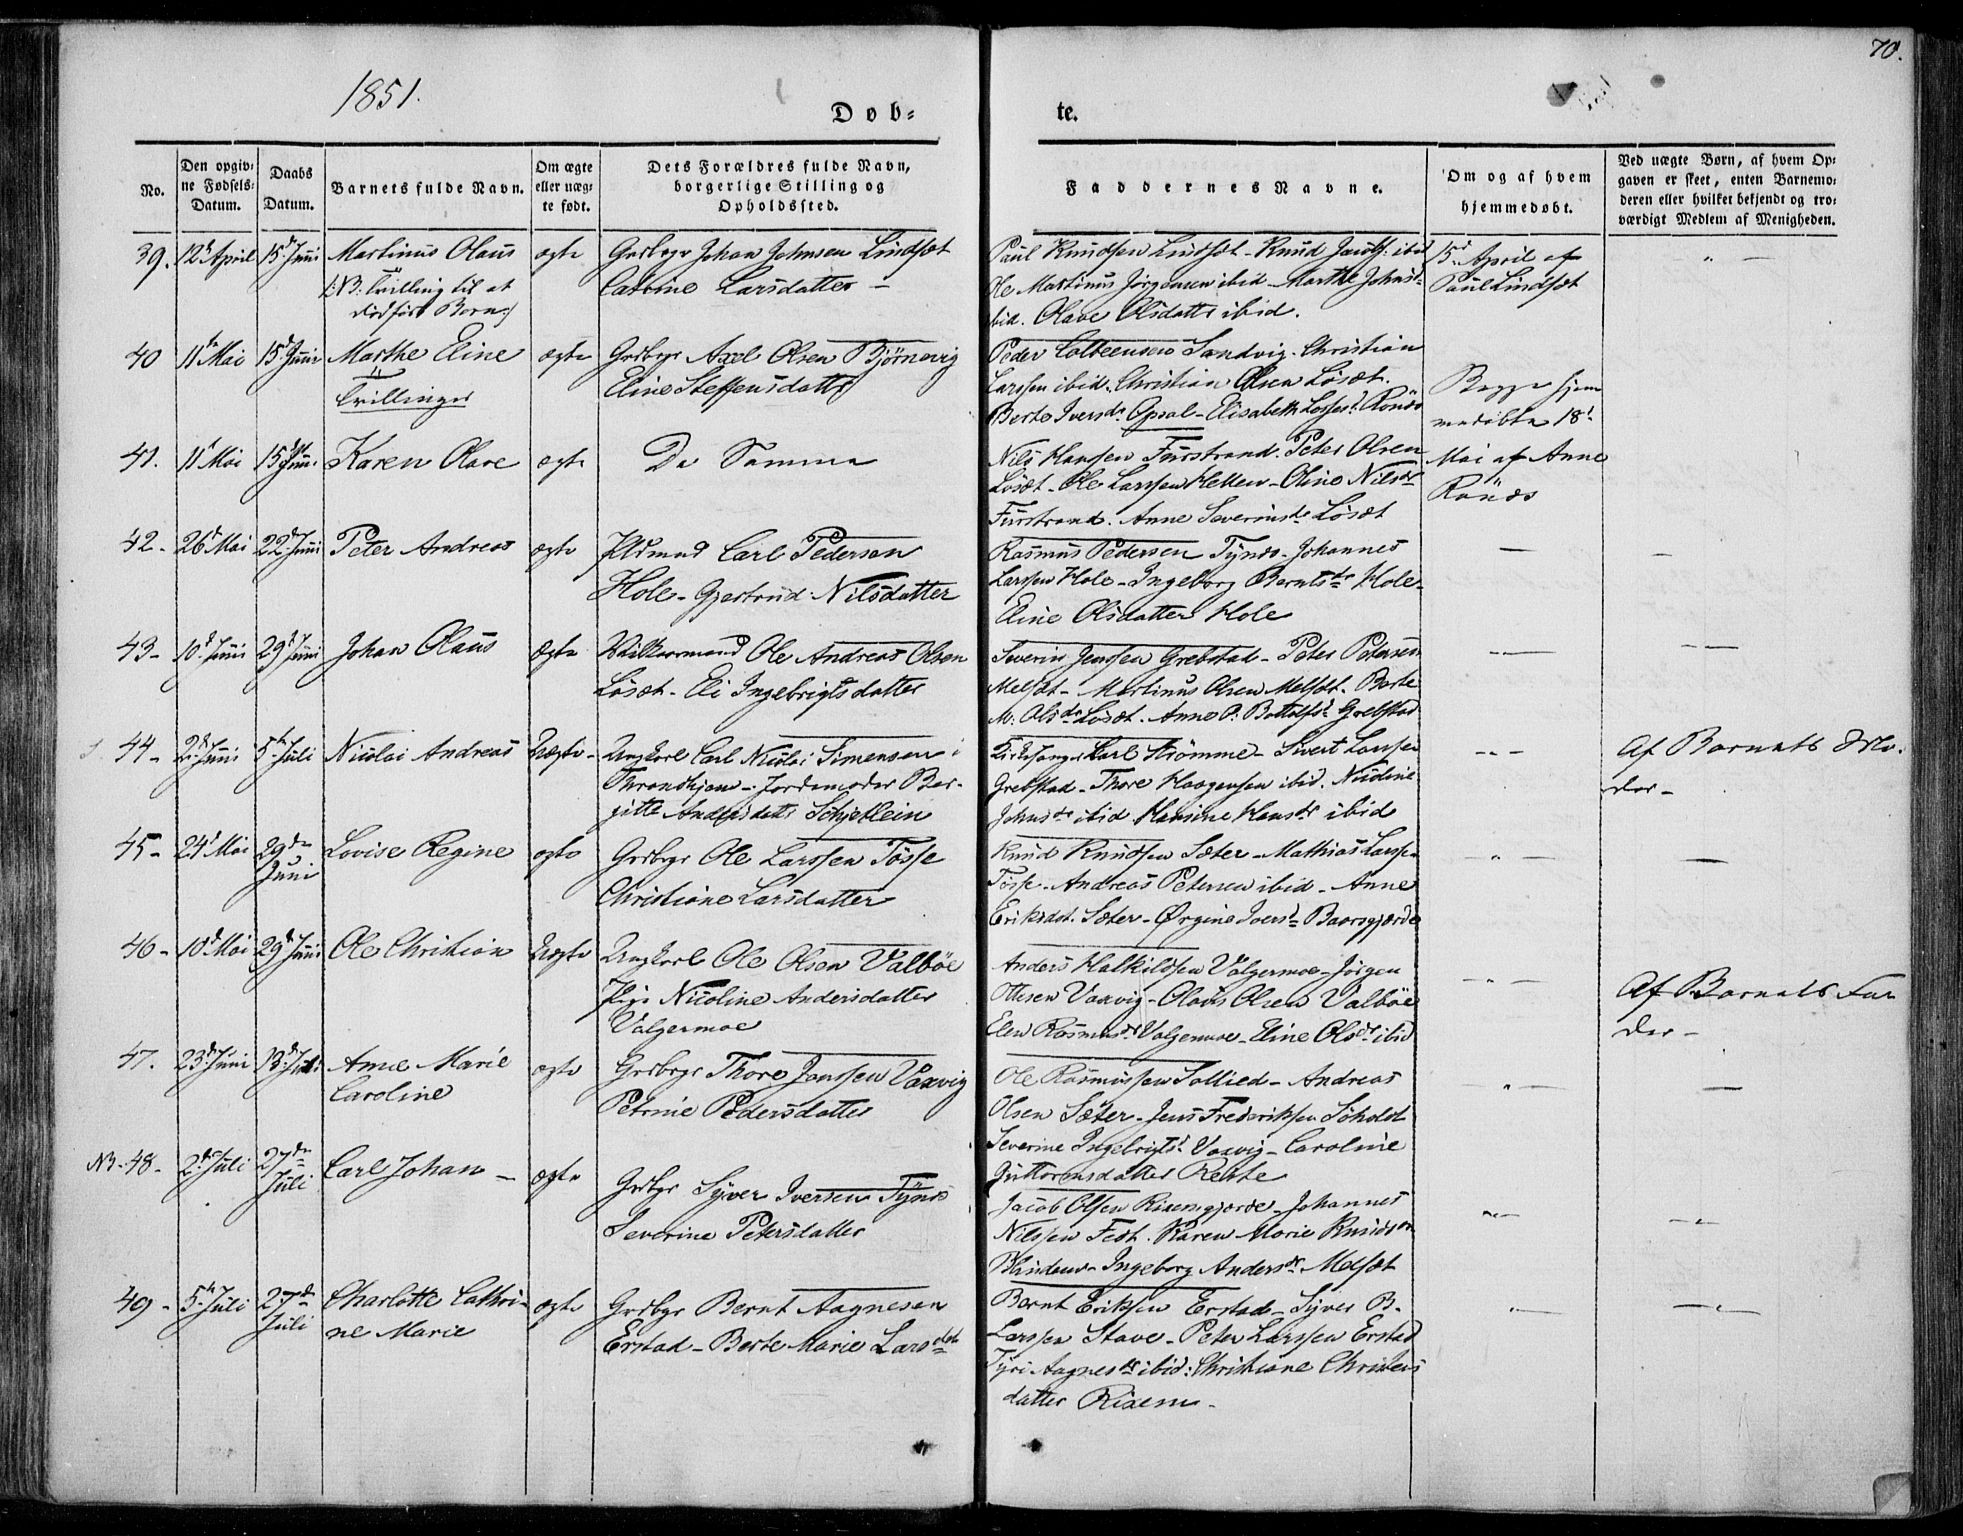 70.
1851.
Døb-
te.
No.
Den opgiv-
ne Fødsels-
Datum.
Daabs
Datum.
Barnets fulde Navn.
Om ægte
eller uæg-
te født.
Dets Forældres fulde Navn,
borgerlige Stilling og
Opholdssted.
Faddernes Navne.
Om og af hvem
hjemmedøbt.
Ved uægte Børn, af hvem Op-
gaven er skeet, enten Barnemo-
deren eller hvilket bekjendt og tro-
værdigt Medlem af Menigheden.
39. 12 April 15 Juni Martinus Olaus ægte Grdbgr Johan Johnsen Lindset
NB: Tvilling til et
dødfødt Barn
Catrine Larsdatter –
Paul Knudsen Lindset – Knud ibid
Ole Martinus Jørgensen ibid – Marthe Johnsd
ibid. Olave Olsdatter ibid.
15 April af
Paul Lindset
40 11 Mai 15 Juni Marthe Eline ægte Grdbgr Axel Olsen Bjørnevig
Tvillinger
Eline Steffensdatter
Peder Colbeensen Sandvig. Christian
Larssen ibid. Christian Olsen Løset.
Berte Iversdr Opsal – Elisabeth Rönes
Begge hjem
medøbte 18
Mai af Anne
Rönes
41. 11 Mai 15 Juni Karen Olave ægte De Samme
Nils Hansen Furstrand. Peter Olsen
Løset – Ole Larssen Hellen – Oline Nilsdr
Furstrand. Anne Severinsdr Løset
42. 26 Mai 22 Juni Peter Andreas ægte Carl Pedersen
Hole – Gjertrud Nilsdatter
Rasmus Pedersen Tynes – Johannes
Larssen Hole – Ingeborg Berntsdr Hole –
Eline Olsdatter Hole
43 – 10 Juni 29 Juni Johan Olaus ægte Vilkaarmand Ole Andreas Olsen
Løset – Eli Ingebrigtsdatter
Severin Jenssen Grebstad – Peter Petersen
Melset – Martinus Olsen Melset. Berte
M. Olsdr Løset. Anne P. Bottolfsd Grebstad
44 – 2 Juni 5 Juli Nicolai Andreas Uægte – Ungkarl Carl Nicolai Simensen i
Throndhjem – Jordemoder Ber-
gitte Andersdatt Schjetlein
Kirkesanger Carl Strömme – Sivert Larssen
Grebstad – Thore Haagensen ibid. Nicoline
Johnsdr ibid Hansine Hansdr ibid
Af Barnets Mo-
der –
45 – 24 Mai 29 Juni Lovise Regine ægte Grdbgr Ole Larssen Tösse
Christiane Larsdatter
Knud Knudsen Sæter – Mathias Larssen
Tösse – Andreas Petersen ibid – Anne
Eriksdat. Sæter – Ørgine Iversd Baarsgjærde
46 – 10 Mai 29 Juni Ole Christian Uægte Ungkarl Ole Olsen Valböe
Pige Nicoline Andersdatter
Valgermoe
Anders Halkildsen Valgermoe – Jörgen
Ottesen Vaxvig – Olaus Olsen Valböe
Elen Rasmusdr Valgermoe – Eline Olsdr ibid
Af Barnets Fa-
der –
47. 23 Juni 13 Juli Anne Marie ægte Grdbgr Thore Jenssen Vaxvig
Caroline
Petrine Pedersdatter
Ole Rasmussen Sollied – Andreas
Olsen Sæter – Jens Frederiksen Söholt
Severine Ingebrigtsd Vaxvig – Caroline
Guttormsdatter Rekte
NB. 48 – 2 Juli 27 Juli Carl Johan – ægte Grdbgr Syver Iversen Tynes
Severine Petersdatter
Jacob Olsen Rixemgjærde – Johannes
Nilssen Fedt. Karen Marie Knudsdr
Blindem – Ingeborg Andersdr Melset
49 – 5 Juli 27 Juli Charlotte Cathri- ægte Grdbgr Bernt Aagnesen
ne Marie
Erstad – Berte Marie Larsdat
Bernt Eriksen Erstad – Syver B.
Larssen Stave – Peter Larssen Erstad
Tyri Aagnesdr ibid: Christiane Christens
datter Rixem –